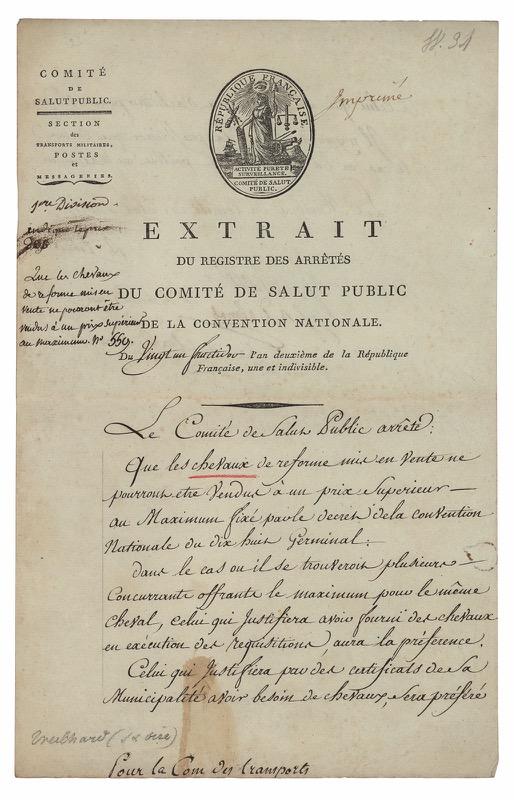 W. 31
COMITÉ
DE
SALUT PUBLIC.
SECTION
des
TRANSPORTS MILITAIRES,
POSTES
et
MESSAGERIES.
RÉPUBLIQUE FRANÇAISE.
ACTIVITÉ PURETÉ
SURVEILLANCE.
COMITÉ DE SALUT
PUBLIC.
Imprimé
1ere Division
Que les chevaux
de reforme mis en
vente ne pouront être
vendus à un prix superieur
au maximum. N° 559.
EXTRAIT
DU REGISTRE DES ARRÊTÉS
DU COMITÉ DE SALUT PUBLIC
DE LA CONVENTION NATIONALE.
Du Vingt un fructidor l'an deuxième de la République
Française, une et indivisible.
Le Comité de Salut Public arrête:
Que les chevaux de reforme mis en Vente ne
pourront être Vendus à un prix Superieur
au Maximum fixé par le decret de la convention
Nationale du dix huit Germinal:
dans le cas ou il se trouverois plusieurs
Concurrants offrants le maximum pour le même
Cheval, celui qui Justifiera avoir fourni des chevaux
en exécution des requisitions, aura la préference.
Celui qui Justifiera par des certificats de Sa
Municipalité avoir besoin de chevaux, Sera préféré
Pour la Com des transports